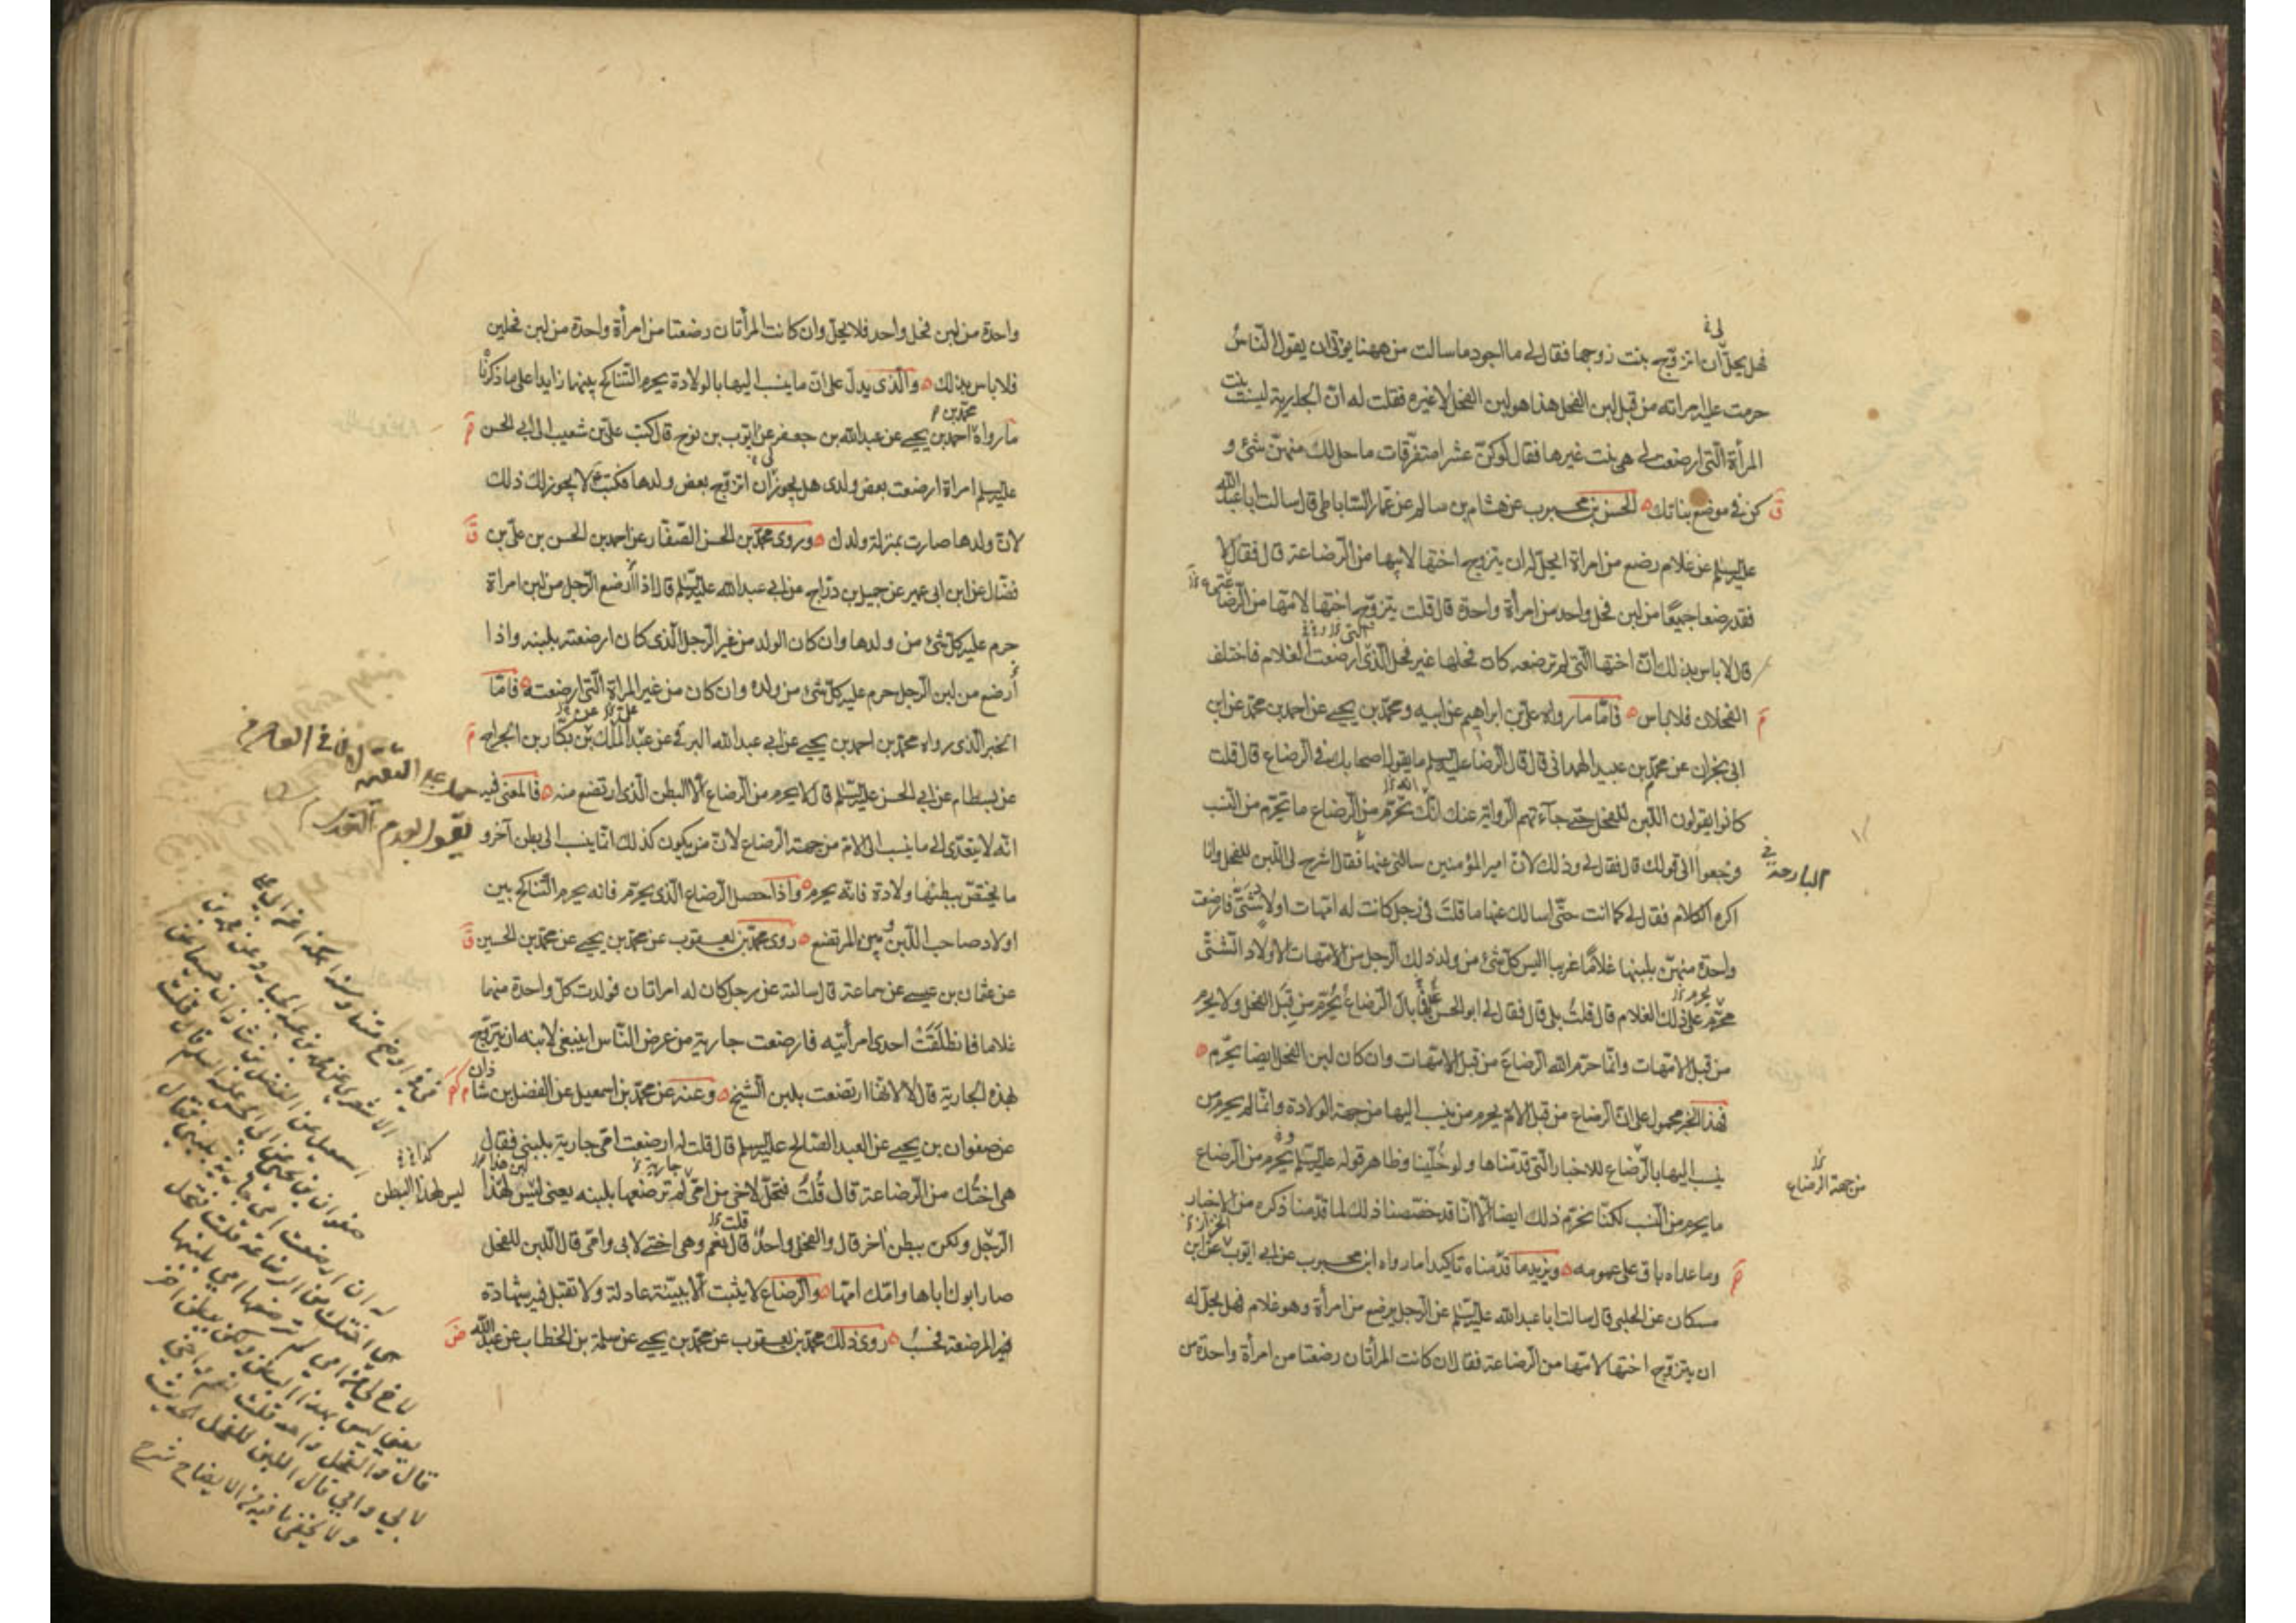 فهل يحل لي ان اتزوج بنت زوجها فقال لي ما اجود ما سالت من ههنا يؤتى ان يقول الناس
حرمت عليه امراته من قبل لبن الفحل هذا هو لبن الفحل لا غيره فقلت له ان الجارية ليست بنت
المرأة التي ارضعت لي هي بنت غيرها فقال لو كن عشرا متفرقات ما حل لك منهن شئ و
كن في موضع بناتك الحسن بن محبوب عن هشام بن سالم عن عمار الساباطي قال سالت ابا عبد الله
عليه السلم عن غلام رضع من امراة ايحل له ان يتزوج اختها لابيها من الرضاعة قال فقال لا
فقد رضعا جميعًا من لبن فحل واحد من امرأة واحدة قال قلت يتزوج اختها لامها من الرضاعة
قال لا باس بذلك ان اختها التي لم ترضعه كان فحلها غير فحل الذي ارضعت الغلام فاختلف
الفحلان فلا باس فاما ما رواه علي بن ابراهيم عن ابيه ومحمد بن يحيى عن احمد بن محمد عن ابن
ابي نجران عن محمد بن عبيد الهمداني قال قال الرضا عليه السلم ما يقول اصحابك في الرضاع قال قلت
كانوا يقولون اللبن للفحل حتى جآءتهم الرواية عنك انك تحرم من الرضاع ما تحرم من النسب
فرجعوا الى قولك قال فقال لي وذلك لان امير المؤمنين سالني عنها فقال اشرح لي اللبن للفحل وانا
البارحة
اكره الكلام فقال لي كما انت حتى اسالك عنها ما قلتَ في رجل كانت له امهات اولاد شتى فارضعت
واحدة منهن بلبنها غلامًا غريبا اليس كل شئ من ولد ذلك الرجل من الامهات الاولاد الشتى
محرم على ذلك الغلام قال قلتُ بلى قال فقال لي ابو الحسن فما بال الرضاع يُحرّم من قِبَل الفحل ولا يحرم
من قبل الامهات وانما حرم الله الرضاعَ من قبل الامهات وان كان لبن الفحل ايضا يحرم
فهذا الخبر محمول على ان الرضاع من قبل الام يحرم من ينسب اليها من جهة الولادة وانما لم يحرم من
ينسب اليها بالرضاع للاخبار التي قدمناها ولو خُلّينا وظاهر قوله عليه السلم يحرم من الرضاع
من جهة الرضاع
ما يحرم من النسب لكنا نحرم ذلك ايضا الا انا قد خصصنا ذلك لما قدمنا ذكره من الاخبار
وما عداه باق على عمومه ويزيد ما قدمناه تاكيدا ما رواه ابن محبوب عن ابي ايوب عن ابن
مسكان عن الحلبي قال سالت ابا عبد الله عليه السلم عن الرجل يرضع من امرأة وهو غلام فهل يحل له
ان يتزوج اختها لامها من الرضاعة فقال ان كانت المرأتان رضعتا من امرأة واحدة من
واحدة من لبن فحل واحد فلا يحل وان كانت المرأتان رضعتا من امرأة واحدة من لبن فحلين
فلا باس بذلك والذي يدل على ان ما ينسب اليها بالولادة يحرم التناكح بينهما زايدا على ما ذكرنا
ما رواه محمد بن احمد بن يحيى عن عبد الله بن جعفر عن ايوب بن نوح قال كتب علي بن شعيب الى ابي الحسن
عليه السلم امراة ارضعت بعض ولدي هل يجوز لي ان اتزوج بعض ولدها فكتب ع لا يجوز لك ذلك
لان ولدها صارت بمنزلة ولدك وروى محمد بن الحسن الصفار عن احمد بن الحسن بن علي بن
فضال عن ابن ابي عمير عن جميل بن دراج عن ابي عبد الله عليه السلم قال اذا ارضع الرجل من لبن امراة
حرم عليه كل شئ من ولدها وان كان الولد من غير الرجل الذي كان ارضعته بلبنه واذا
أُرضع من لبن الرجل حرم عليه كل شئ من ولده وان كان من غير المراة التي ارضعته فاما
الخبر الذي رواه محمد بن احمد بن يحيى عن ابي عبد الله البرقي عن عبد الملك بن بكار بن الجراح
عن بسطام عن ابي الحسن عليه السلم قال لا يحرم من الرضاع الا البطن الذي ارتضع منه فالمعنى فيه
انه لا يتعدى الى ما ينسب الى الام من جهة الرضاع لان من يكون كذلك انما ينسب الى بطن آخر و
ما يختص ببطنها ولادة فانه يحرم واذا حصل الرضاع الذي يحرّم فانه يحرم التناكح بين
اولاد صاحب اللبن وبين المرتضع روى محمد بن يعقوب عن محمد بن يحيى عن محمد بن الحسين
عن عثمان بن عيسى عن سماعة قال سالته عن رجل كان له امراتان فولدت كل واحدة منهما
غلاما فانطلَقَتْ احدى امرأتيه فارضعت جارية من عرض الناس اينبغي لابنه ان يتزوج
بهذه الجارية قال لا لانها ارتضعت بلبن الشيخ وعنه عن محمد بن اسمعيل عن الفضل بن شاذان
عن صفوان بن يحيى عن العبد الصالح عليه السلم قال قلت له ارضعت امي جارية بلبني فقال
هي اختك من الرضاعة قال قُلتُ فتحل لاخي من امي لم ترضعها بلبنه يعني ليس لهذا
ليس لهذا البطن
الرجل ولكن ببطن اخر قال والفحل واحد قال نعم وهي اختي لابي وامي قال اللبن للفحل
صار ابوك اباها وامك امها والرضاع لا يثبت الا ببينة عادلة ولا تقبل فيه شهادة
غير المرضعة فحسبُ روى ذلك محمد بن يعقوب عن محمد بن يحيى عن سلمة بن الخطاب عن عبد الله
اسمعيل عن الفضل بن شاذان جميعا عن
صفوان بن يحيى عن ابي الحسن عليه السلم قال قلت
له ان ارضعت امي جارية بلبني فقال
هي اختك من الرضاعة قلت فتحل
لاخ لي من امي لم ترضعها امي بلبنها
يعني ليس بهذا البطن ولكن ببطن اخر
قال والفحل واحد قلت نعم واختي
لابي وامي قال اللبن للفحل الحديث
ولا يخفى ما فيه من الايضاح شرح